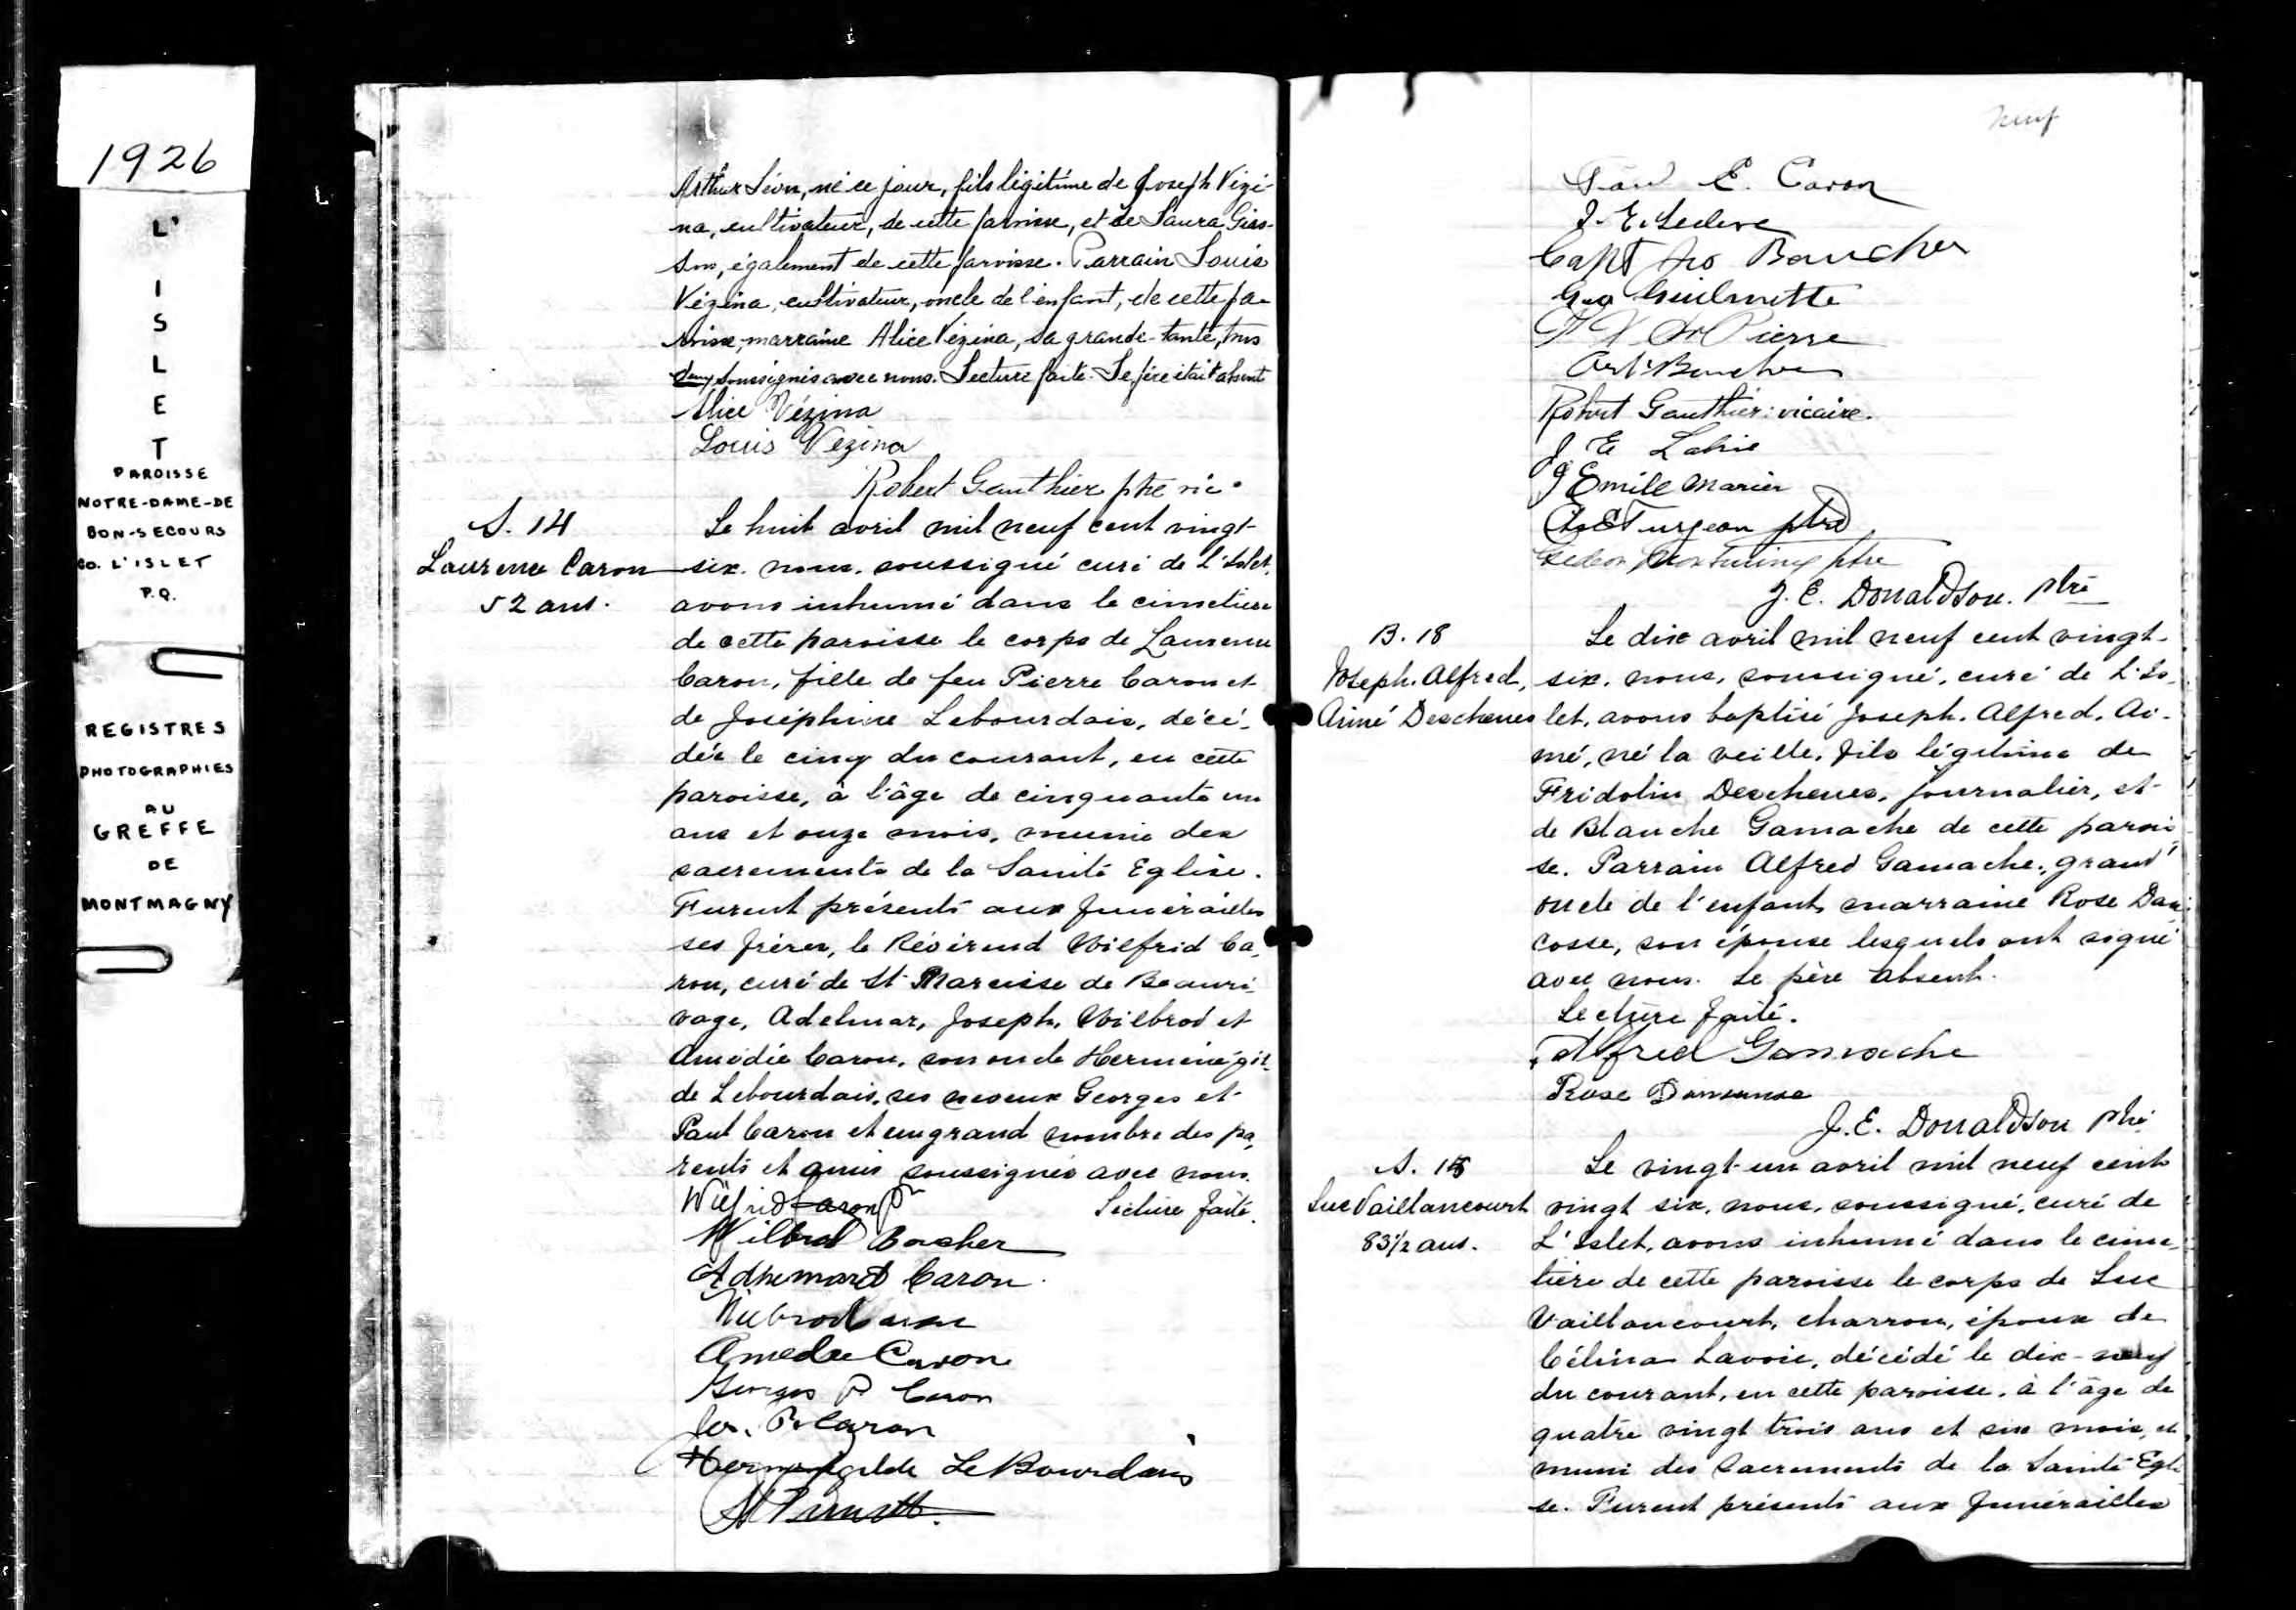 1926
L'
I
S
L
E
T
PAROISSE
NOTRE-DAME-DE
BON-SECOURS
CO. L'ISLET
P.Q.
REGISTRES
PHOTOGRAPHIES
AU
GREFFE
DE
MONTMAGNY
Arthur Léon, né ce jour, fils légitime de Joseph Vézi-
na, cultivateur, de cette paroisse, et de Laura Gias-
son, également de cette paroisse. Parrain Louis
Vézina, cultivateur, oncle de l'enfant, de cette pa-
roisse, marraine Alice Vézina, sa grande-tante, tous
deux soussignés avec nous. Lecture faite. Le père était absent
Alice Vézina
Louis Vézina
Robert Gauthier ptre vic.
S. 14
Laurence Caron
52 ans.
Le huit avril mil neuf cent vingt-
six, nous, soussigné curé de L'Islet,
avons inhumé dans le cimetière
de cette paroisse le corps de Laurence
Caron, fille de feu Pierre Caron et
de Joséphine Lebourdais, décé-
dée le cinq du courant, en cette
paroisse, à l'âge de cinquante un
ans et onze mois, munie des
sacrements de la Sainte Eglise.
Furent présents aux funérailles
ses frères, le Révérend Wilfrid Ca-
ron, curé de St Narcisse de Beauri-
vage, Adelmar, Joseph, Wilbrod et
Amédée Caron, son oncle Herménégil-
de Lebourdais, ses neveux Georges et
Paul Caron et un grand nombre des pa-
rents et amis soussignés avec nous.
Lecture faite.
Wilfrid Caron Ptr
Wilbrod Boucher
Adhemard Caron
Wilbrod Caron
Amedee Caron
Georges P. Caron
Jos. P. Caron
Hermenegilde LeBourdais
neuf
Paul E. Caron
J. E. Leclerc
Capt Jos Boucher
Geo Guilmette
F X St Pierre
Art. Boucher
Robert Gauthier: vicaire.
J E Labrie
J Emile Marier
Turgeon ptre
ptre
J. E. Donaldson. ptre
B. 18
Joseph. Alfred,
Aimé Deschenes
Le dix avril mil neuf cent vingt-
six, nous, soussigné, curé de L'Is-
let, avons baptisé Joseph. Alfred. Ai-
mé, né la veille, fils légitime de
Fridolin Deschenes, journalier, et
de Blanche Gamache de cette parois-
se. Parrain Alfred Gamache, grand'
oncle de l'enfant, marraine Rose Dan-
cosse, son épouse lesquels ont signé
avec nous. Le père absent.
Lecture faite.
Alfred Gamache
Rose Dancause
J. E. Donaldson ptre
S. 15
Luc Vaillancourt
83 1/2 ans.
Le vingt-un avril mil neuf cent
vingt six, nous, soussigné, curé de
L'Islet, avons inhumé dans le cime-
tière de cette paroisse le corps de Luc
Vaillancourt, charron, époux de
Célina Lavoie, décédé le dix-neuf
du courant, en cette paroisse, à l'âge de
quatre vingt trois ans et six mois, et
muni des Sacrements de la Sainte Egli-
se. Furent présents aux funérailles